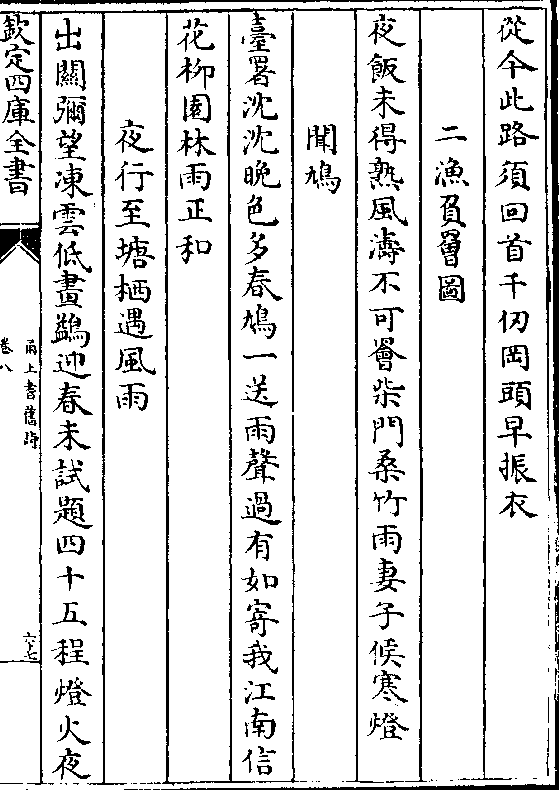 從今此路須回首千仞岡頭早振衣
二漁負罾圖
夜飯未得熟風濤不可罾柴門桑竹雨妻子候寒燈
聞鳩
臺署沈沈晚色多春鳩一送雨聲過有如寄我江南信
花柳園林雨正和
夜行至塘栖遇風雨
出關彌望凍雲低畫鷁迎春未試題四十五程燈火夜
欽定四庫全書
甬上耆舊詩
卷八
六七